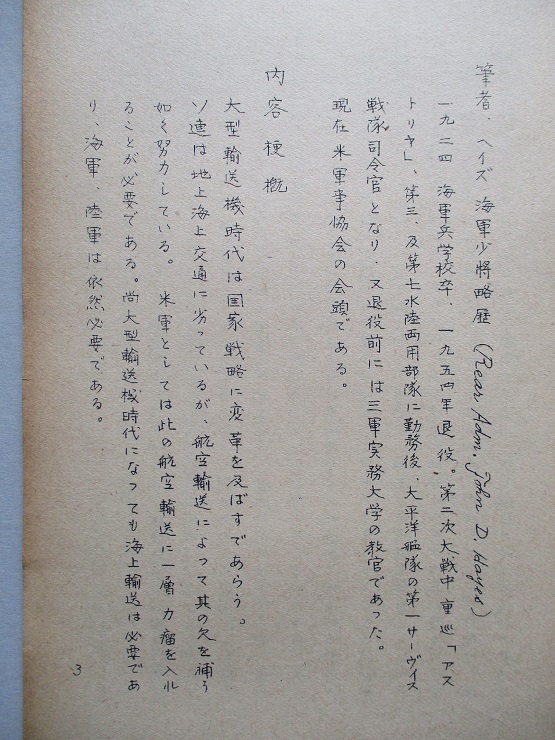 筆者.ヘイズ 海軍少将略歴 (Rear Adm. John D. Hayes)
一九二四 海軍兵学校卒、一九五四年退役。第二次大戦中 重巡「アス
トリヤ」、第三、及第七水陸両用部隊に勤務後、太平洋艦隊の第一サーヴイス
戦隊司令官となり、又退役前には三軍実務大学の教官であった。
現在 米軍事協会の会頭である。
内容梗概
大型輸送機時代は国家戦略に変革を及ばすであらう。
ソ連は地上海上交通に劣っているが、航空輸送によって其の欠を補う
如く努力している。 米軍としては此の航空輸送に一層力瘤を入れ
ることが必要である。尚大型輸送機時代になっても海上輸送は必要であ
り、海軍、陸軍は依然必要である。
3